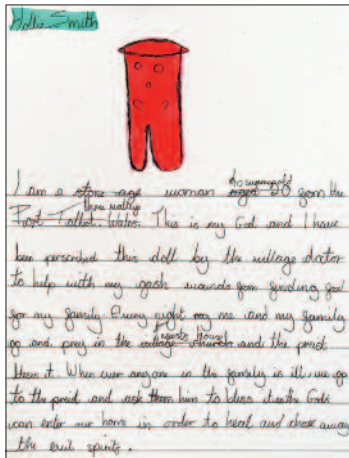 Hollie Smith
I am a stone age woman aged 20 from the
Port Talbot, Wales. This is my God and I have
been perscribed this doll by the village doctor
to help with my gash wounds from finding food
for my family. Every night me and my family
go and pray in the priests house and the priest
bless it. When ever anyone in the family is ill, we go
to the priest and ask him to bless it so the Gods
can enter our home in order to heal and chase away
the evil spirits.